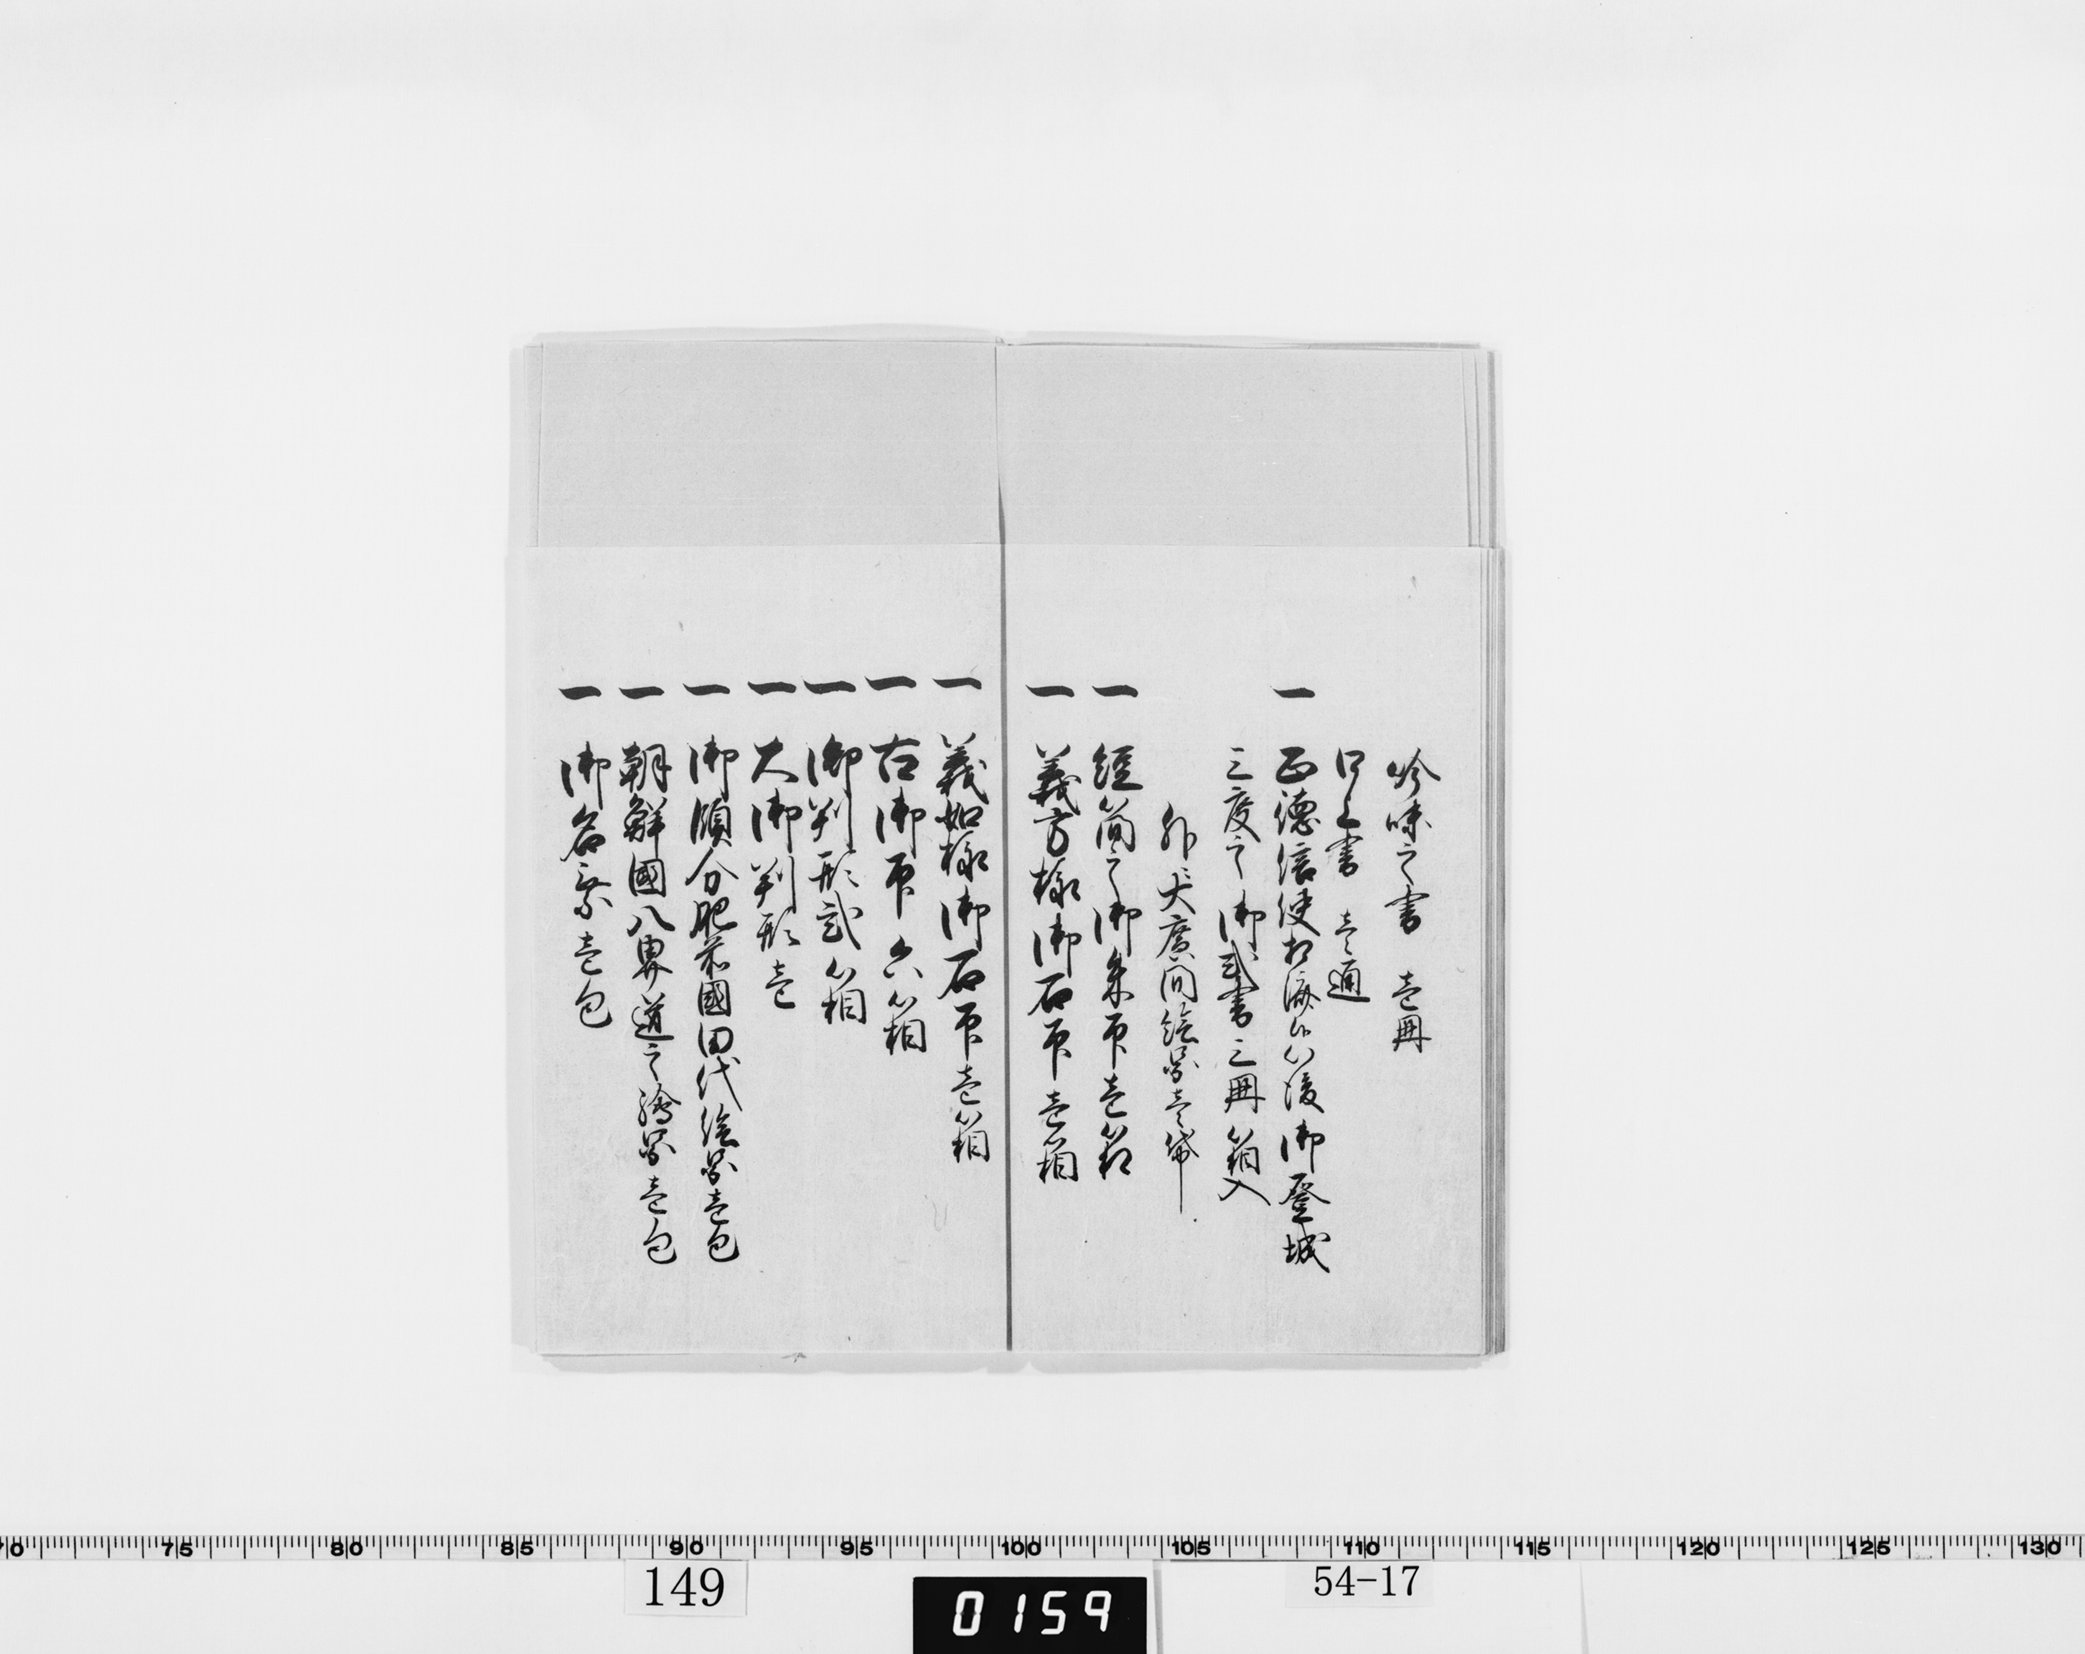 吟味之書 壱冊
口上書 壱通
一 正徳信使相済候以後御登城
三度之御式書三冊箱入
外ニ大廣間絵図壱袋
一 経筒之御朱印壱箱
一 義方様御石印壱箱
一 義如様御石印壱箱
一 古御印六箱
一 御判形弐箱
一 大御判形壱
一 御領分肥前國田代絵図壱包
一 朝鮮國八界道之繪図壱包
一 御名乗壱包
70 75 80 85 90 95 100 105 110 115 120 125 130
149
0159
54-17